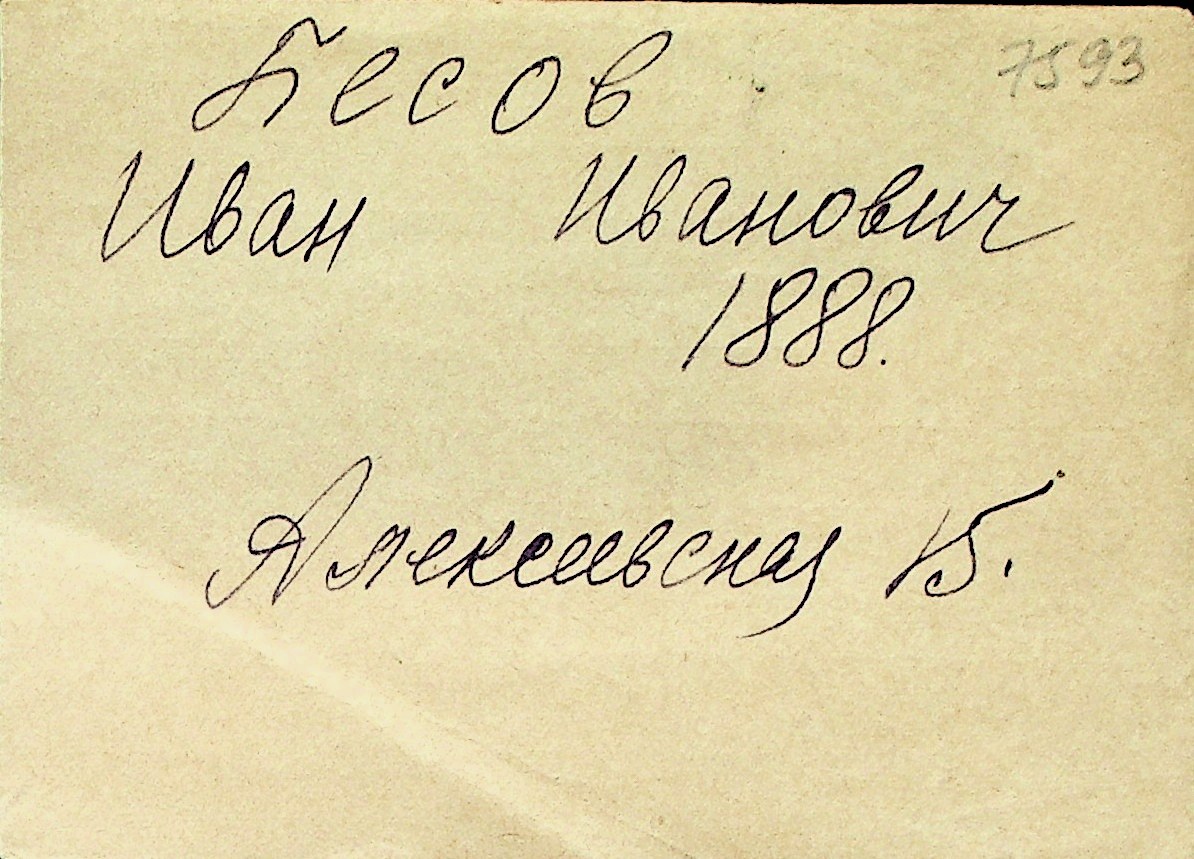 7593
Бесов
Иван Иванович
1888.
15.